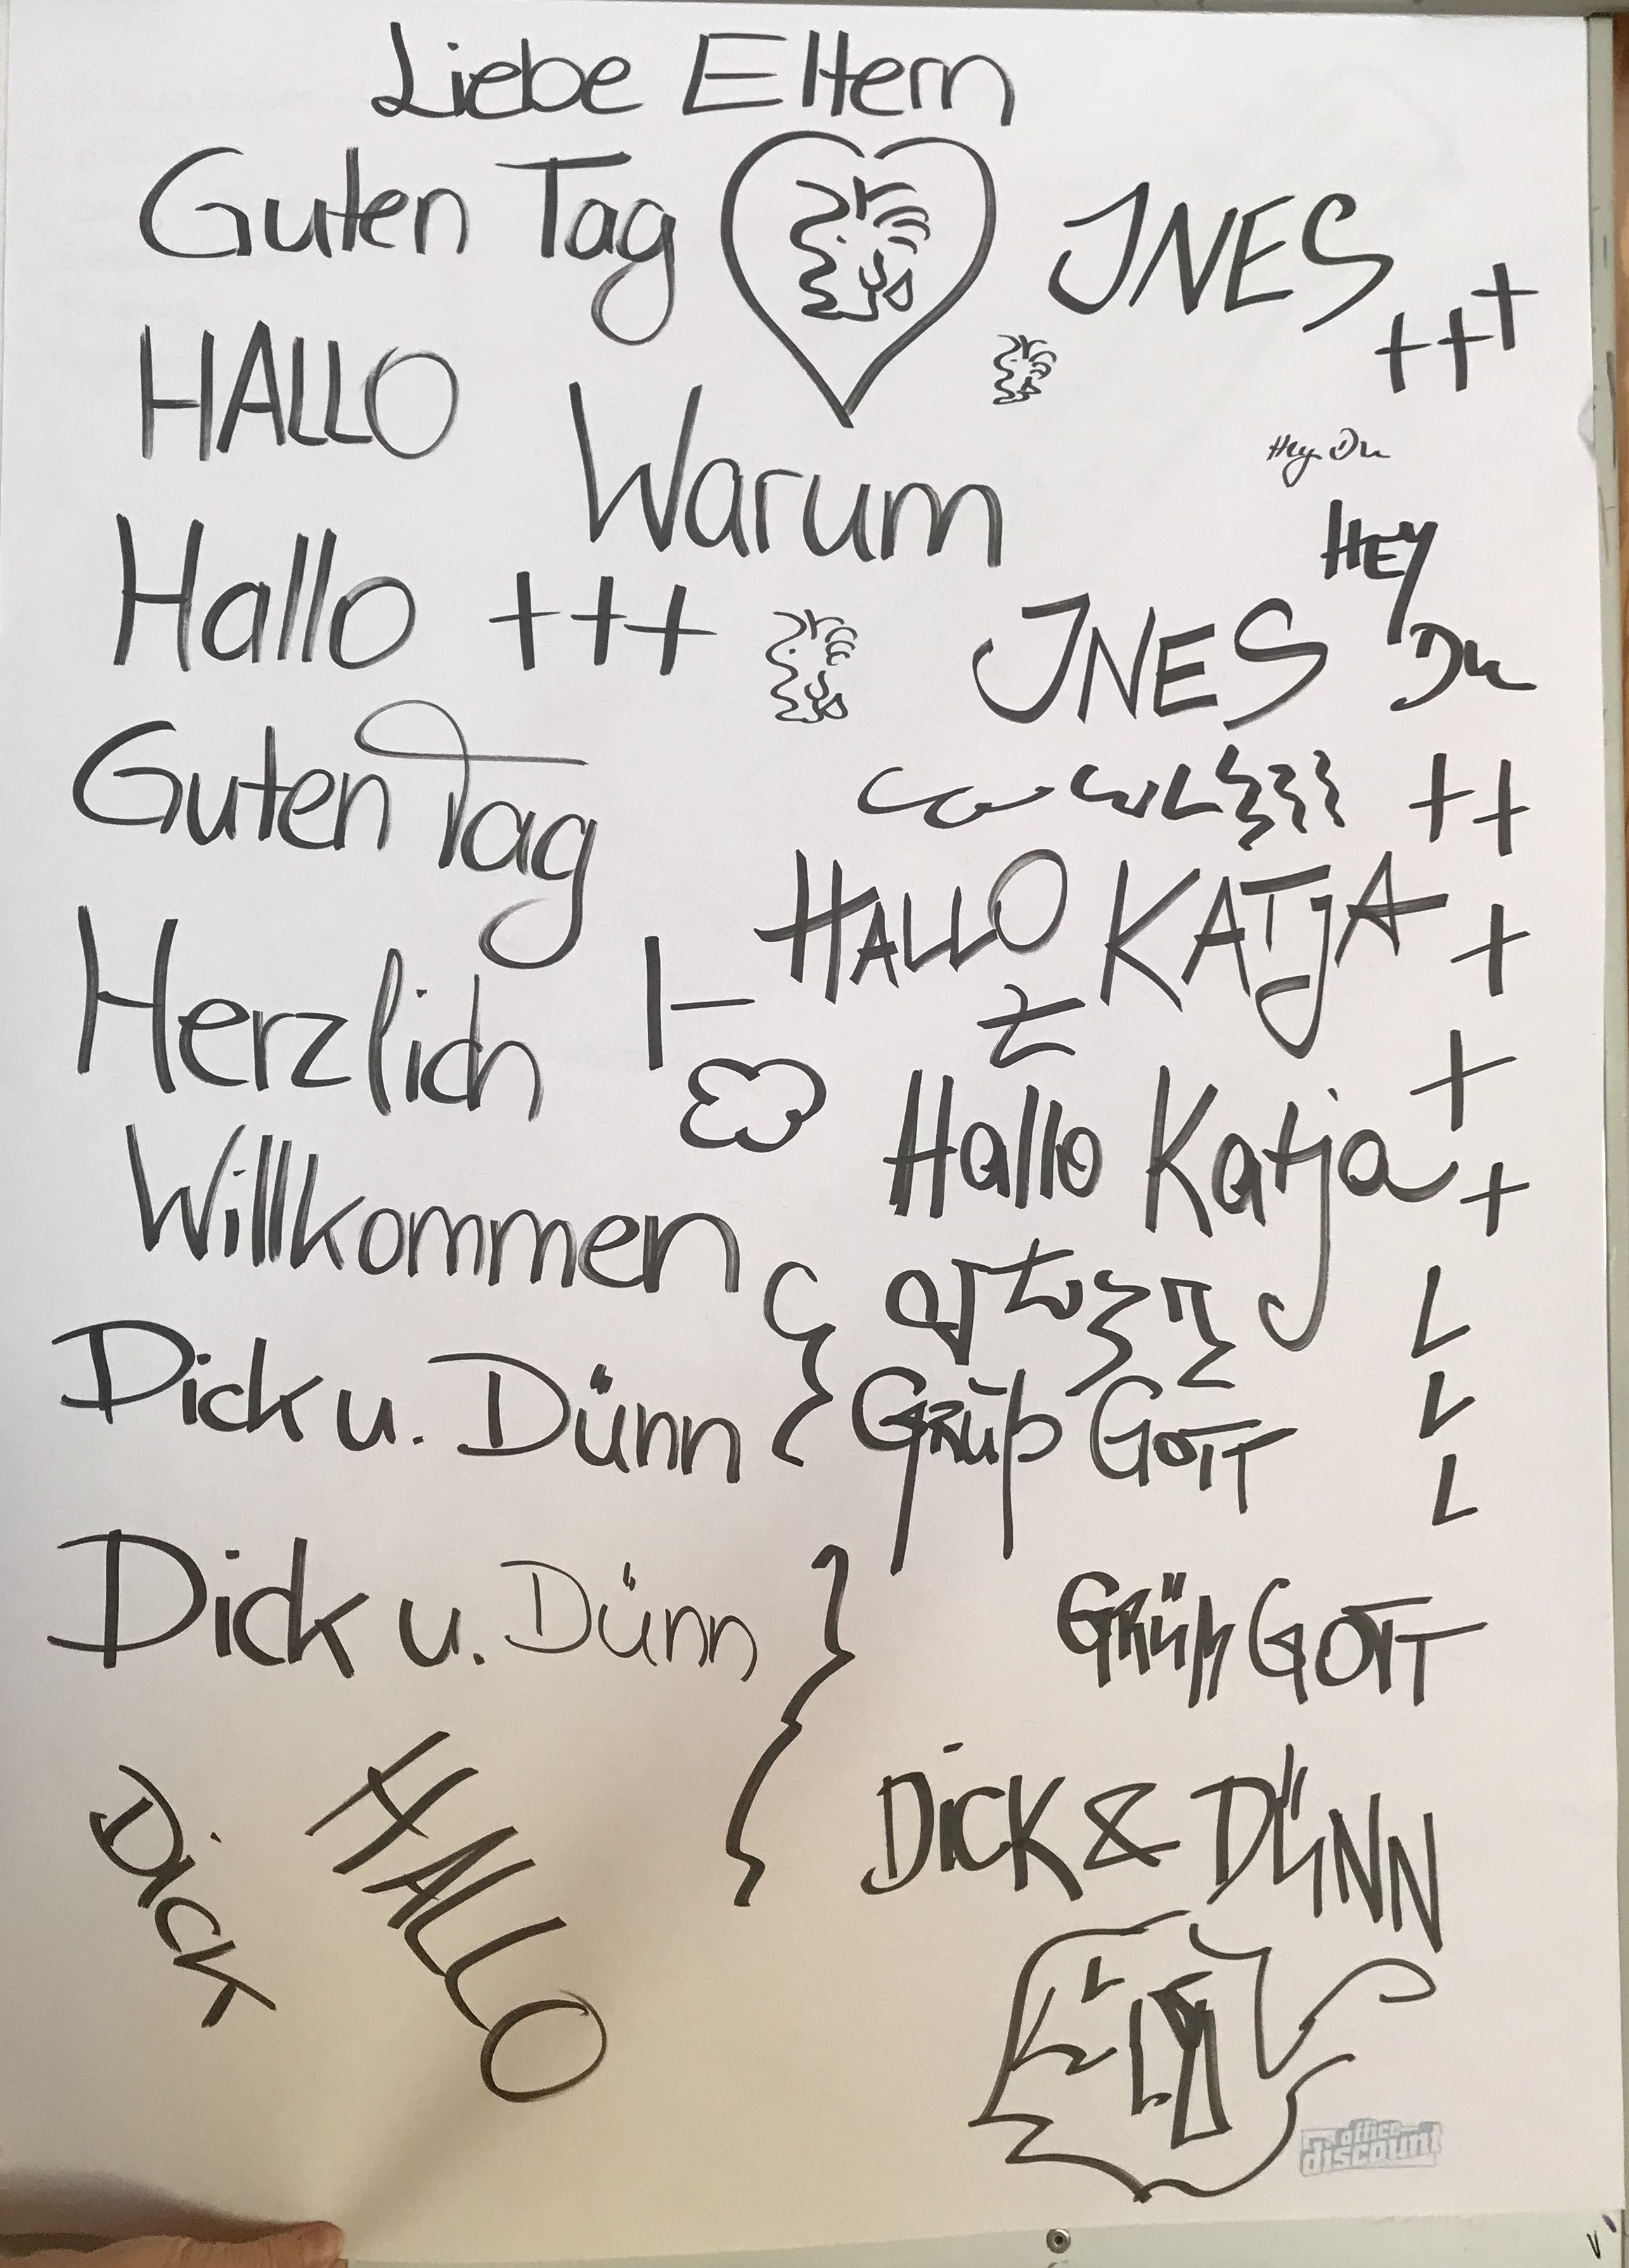 Liebe Eltern
Guten Tag
JNES
+++
HALLO
Warum
Hey Du
HEY
Du
Hallo +++
JNES
++
Guten Tag
HALLO KATJA
+
Herzlich
+
Hallo Katja
+
Willkommen
Dick u. Dünn
GRÜß GOTT
L
L
L
Dick u. Dünn
GRÜß GOTT
DiCK & DÜNN
DiCK
HALLO
office
discount